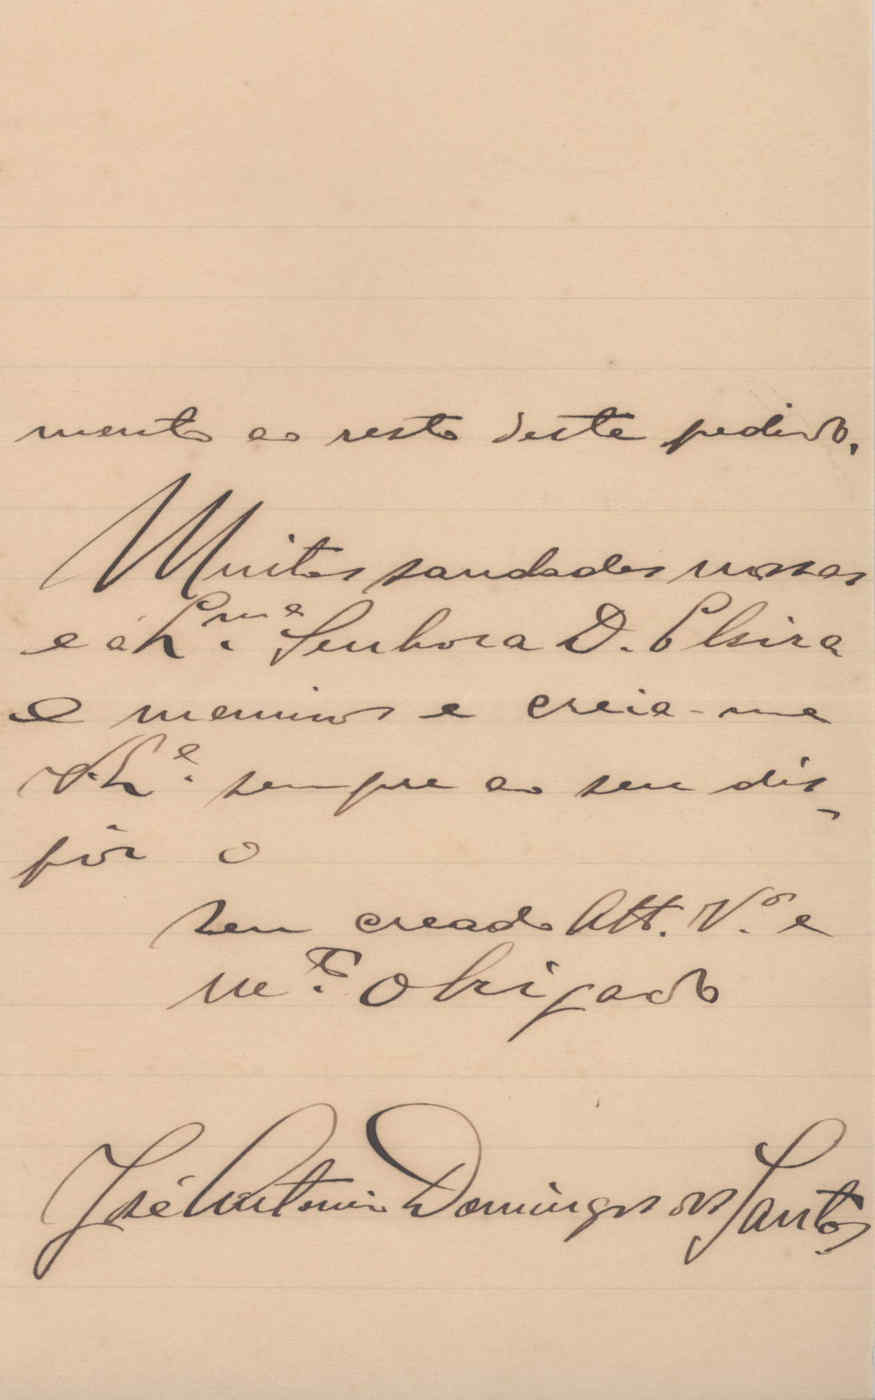 mento ao resto deste pedido.
Muitas saudades nossas
e á Ex.ma Senhora D. Elvira
e meninos e creia-me
V. Ex.ª sempre ao seu dis-
pôr o
seu creado Att.º V.ºr e
m.to Obrigado
José Antonio Domingos dos Santos